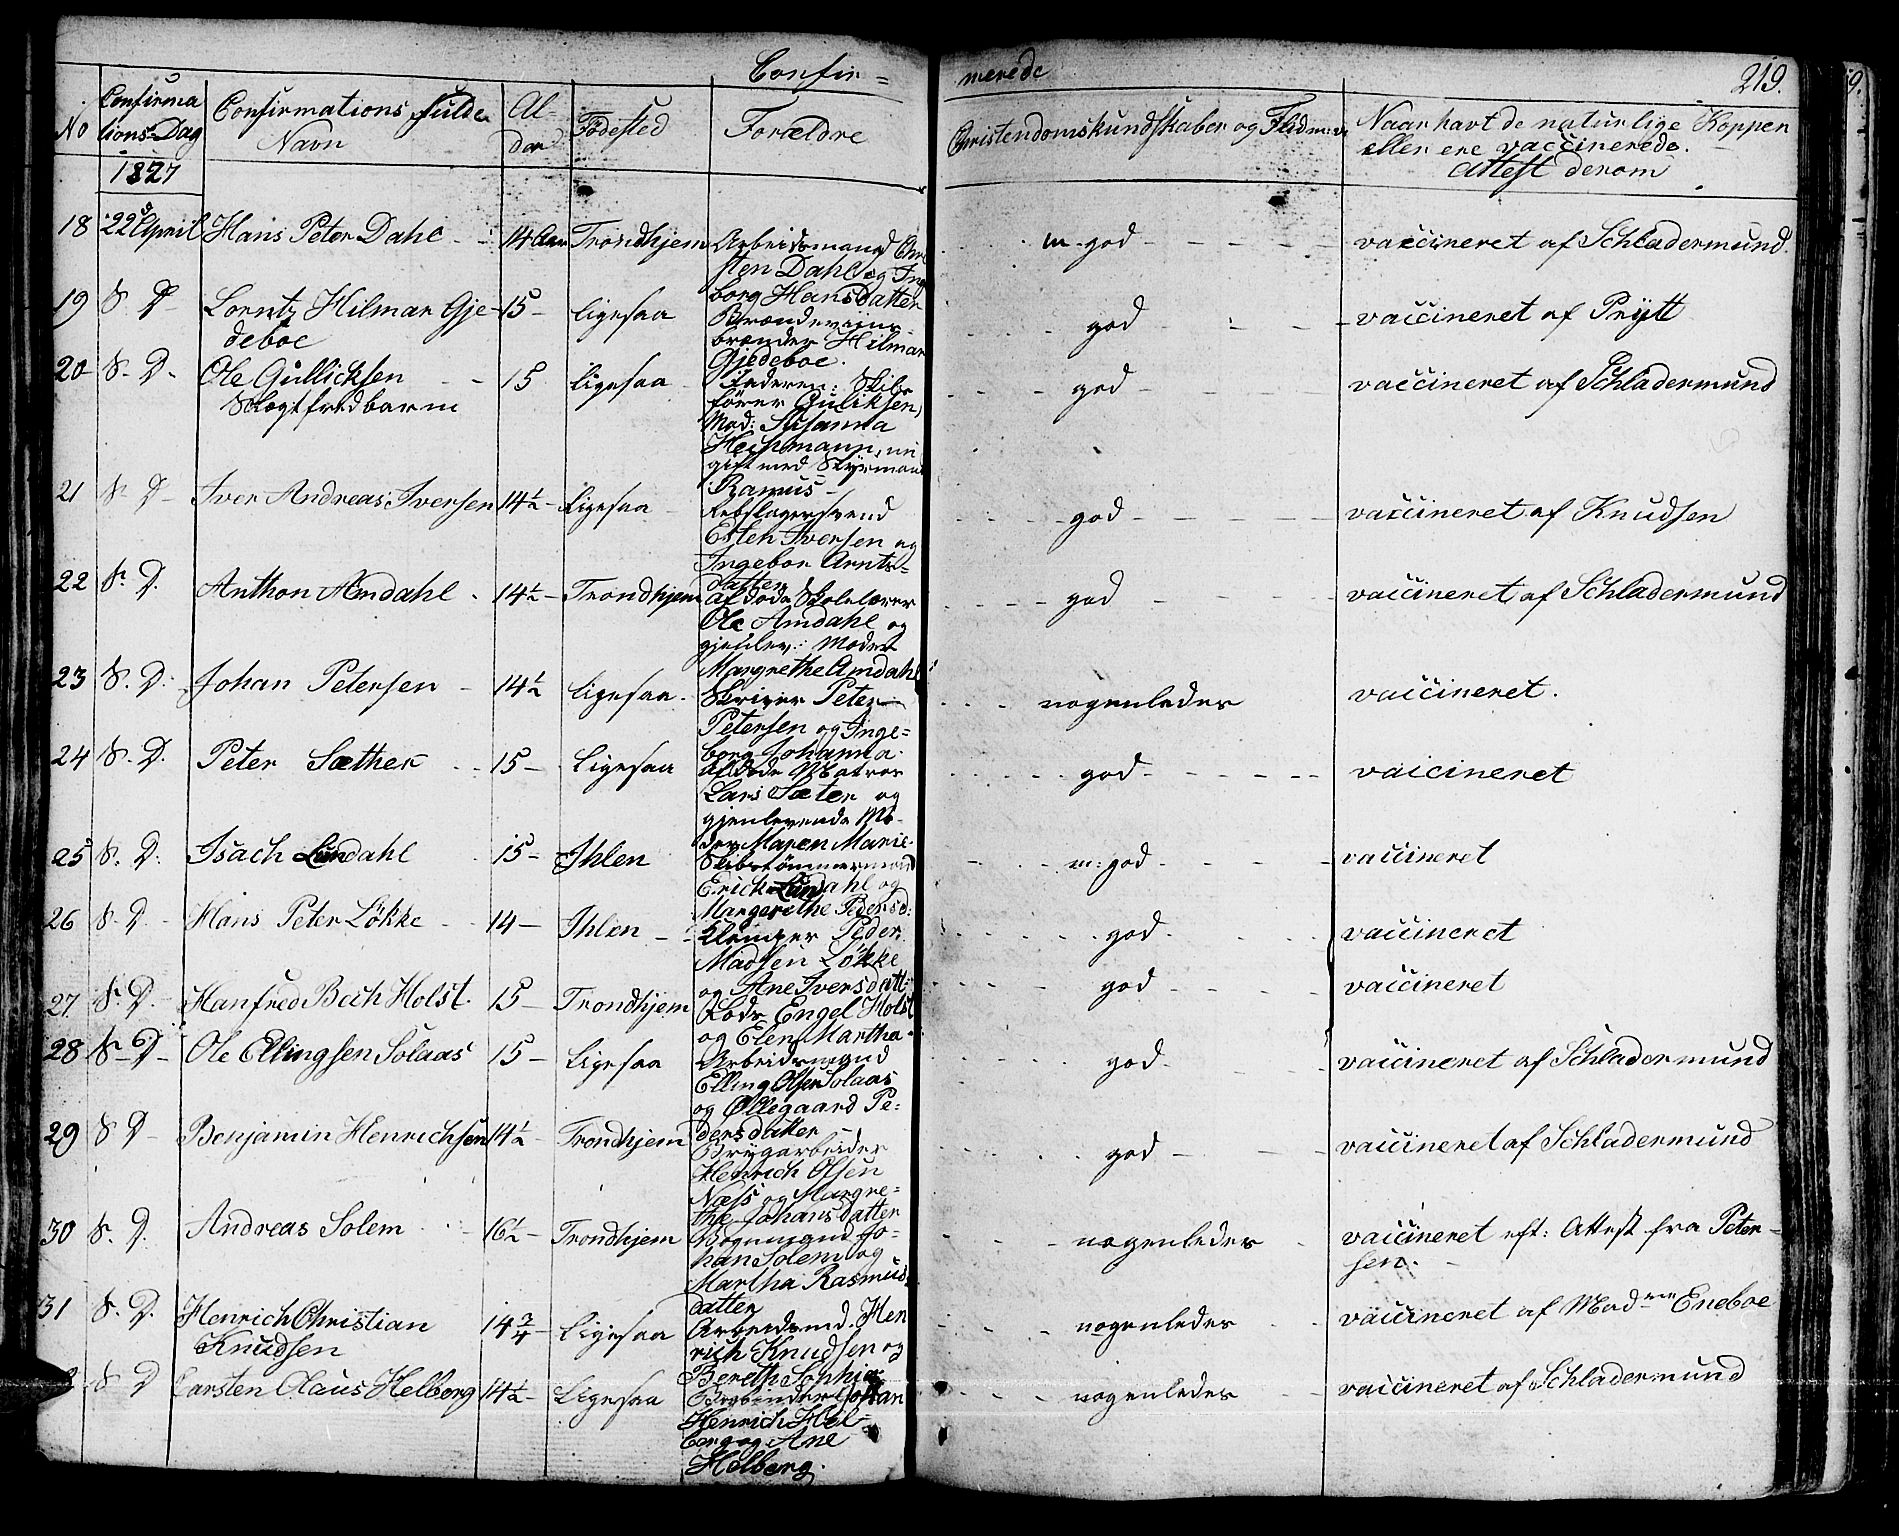 Confir= merede 219.
No Confirmations-Dag Confirmations fulde Navn Alder Födested Forældre Christendomskundskaber og Naar havt de naturlige Kopper eller ere vaccinerede. Attest derom
1827
18 22d April Hans Peter Dahl 14 Aar Trondhjem Arbeidsmand Chri
sten Dahl og Ing
borg Hansdatter
m-god vaccineret af Schladermund.
19 S. D. Lorentz Hilmar Gje-
deboe 15 ligesaa Brændeviins-
brænder Hilmar
Gjedeboe.
god vaccineret af Prytt
20 S. D. Ole Gullicksen
Slegtfredbarn 15 ligesaa Faderen: Skibs
förer Guliksen,
Mod: Susanna
Heitzmann, nu
gift med Styrmand
Ramus-
god vaccineret af Schladermund
21 S. D. Iver Andreas Iversen 14½ ligesaa Rebslagersvend
Esten Iversen og
Ingebor Arnts-
datter
god vaccineret af Knudsen
22 S. D. Anthon Amdahl 14½ Trondhjem afdøde Skolelærer
Ole Amdahl og
gjenlev: Moder
Margrethe Amdahl
god vaccineret af Schladermund
23 S. D. Johan Petersen 14½ ligesaa Skriver Peter
Petersen og Inge=
borg Johanna.
nogenledes vaccineret.
24 S. D. Peter Sæther 15 ligesaa afdøde Matros
Lars Sæter og
gjenlevende Mo-
der Maren Marie
god vaccineret
25 S. D. Isach Lindahl 15 Ihlen Skibstömmermand
Erick Lindahl og
Margerethe Pedersd:
m: god vaccineret
26 S. D. Hans Peter Lökke 14 Ihlen Klemper Peder
Madsen Lökke
og Ane Iversdatt:
god vaccineret
27 S. D. Hanfred Bech Holst 15 Trondhjem Lods Engel Holst
og Elen Martha
god vaccineret
28 S. D. Ole Ellingsen Solaas 15 ligesaa Arbeidsmand
Elling Olsen Solaas
og Øllegaard Pe-
dersdatter
god vaccineret af Schladermund
29 S. D. Benjamin Henrichsen 14½ Trondhjem Brygarbeider
Henrich Olsen
Næss og Margre=
the Johansdatter
god vaccineret af Schladermund
30 S. D. Andreas Solem 16½ Trondhjem Bogmand Jo-
han Solem og
Martha Rasmus
datter
nogenledes vaccineret eft: Attest fra Peter-
sen.
31 S. D. Henrich Christian
Knudsen 14¾ ligesaa Arbeidsmd. Hen
rich Knudsen og
Bereth Sophia
nogenledes vaccineret af Madme Eneboe
S. D. Carsten Claus Helberg 14½ ligesaa Johan
Henrich Hel-
berg og Ane
Helberg.
nogenledes vaccineret af Schladermund